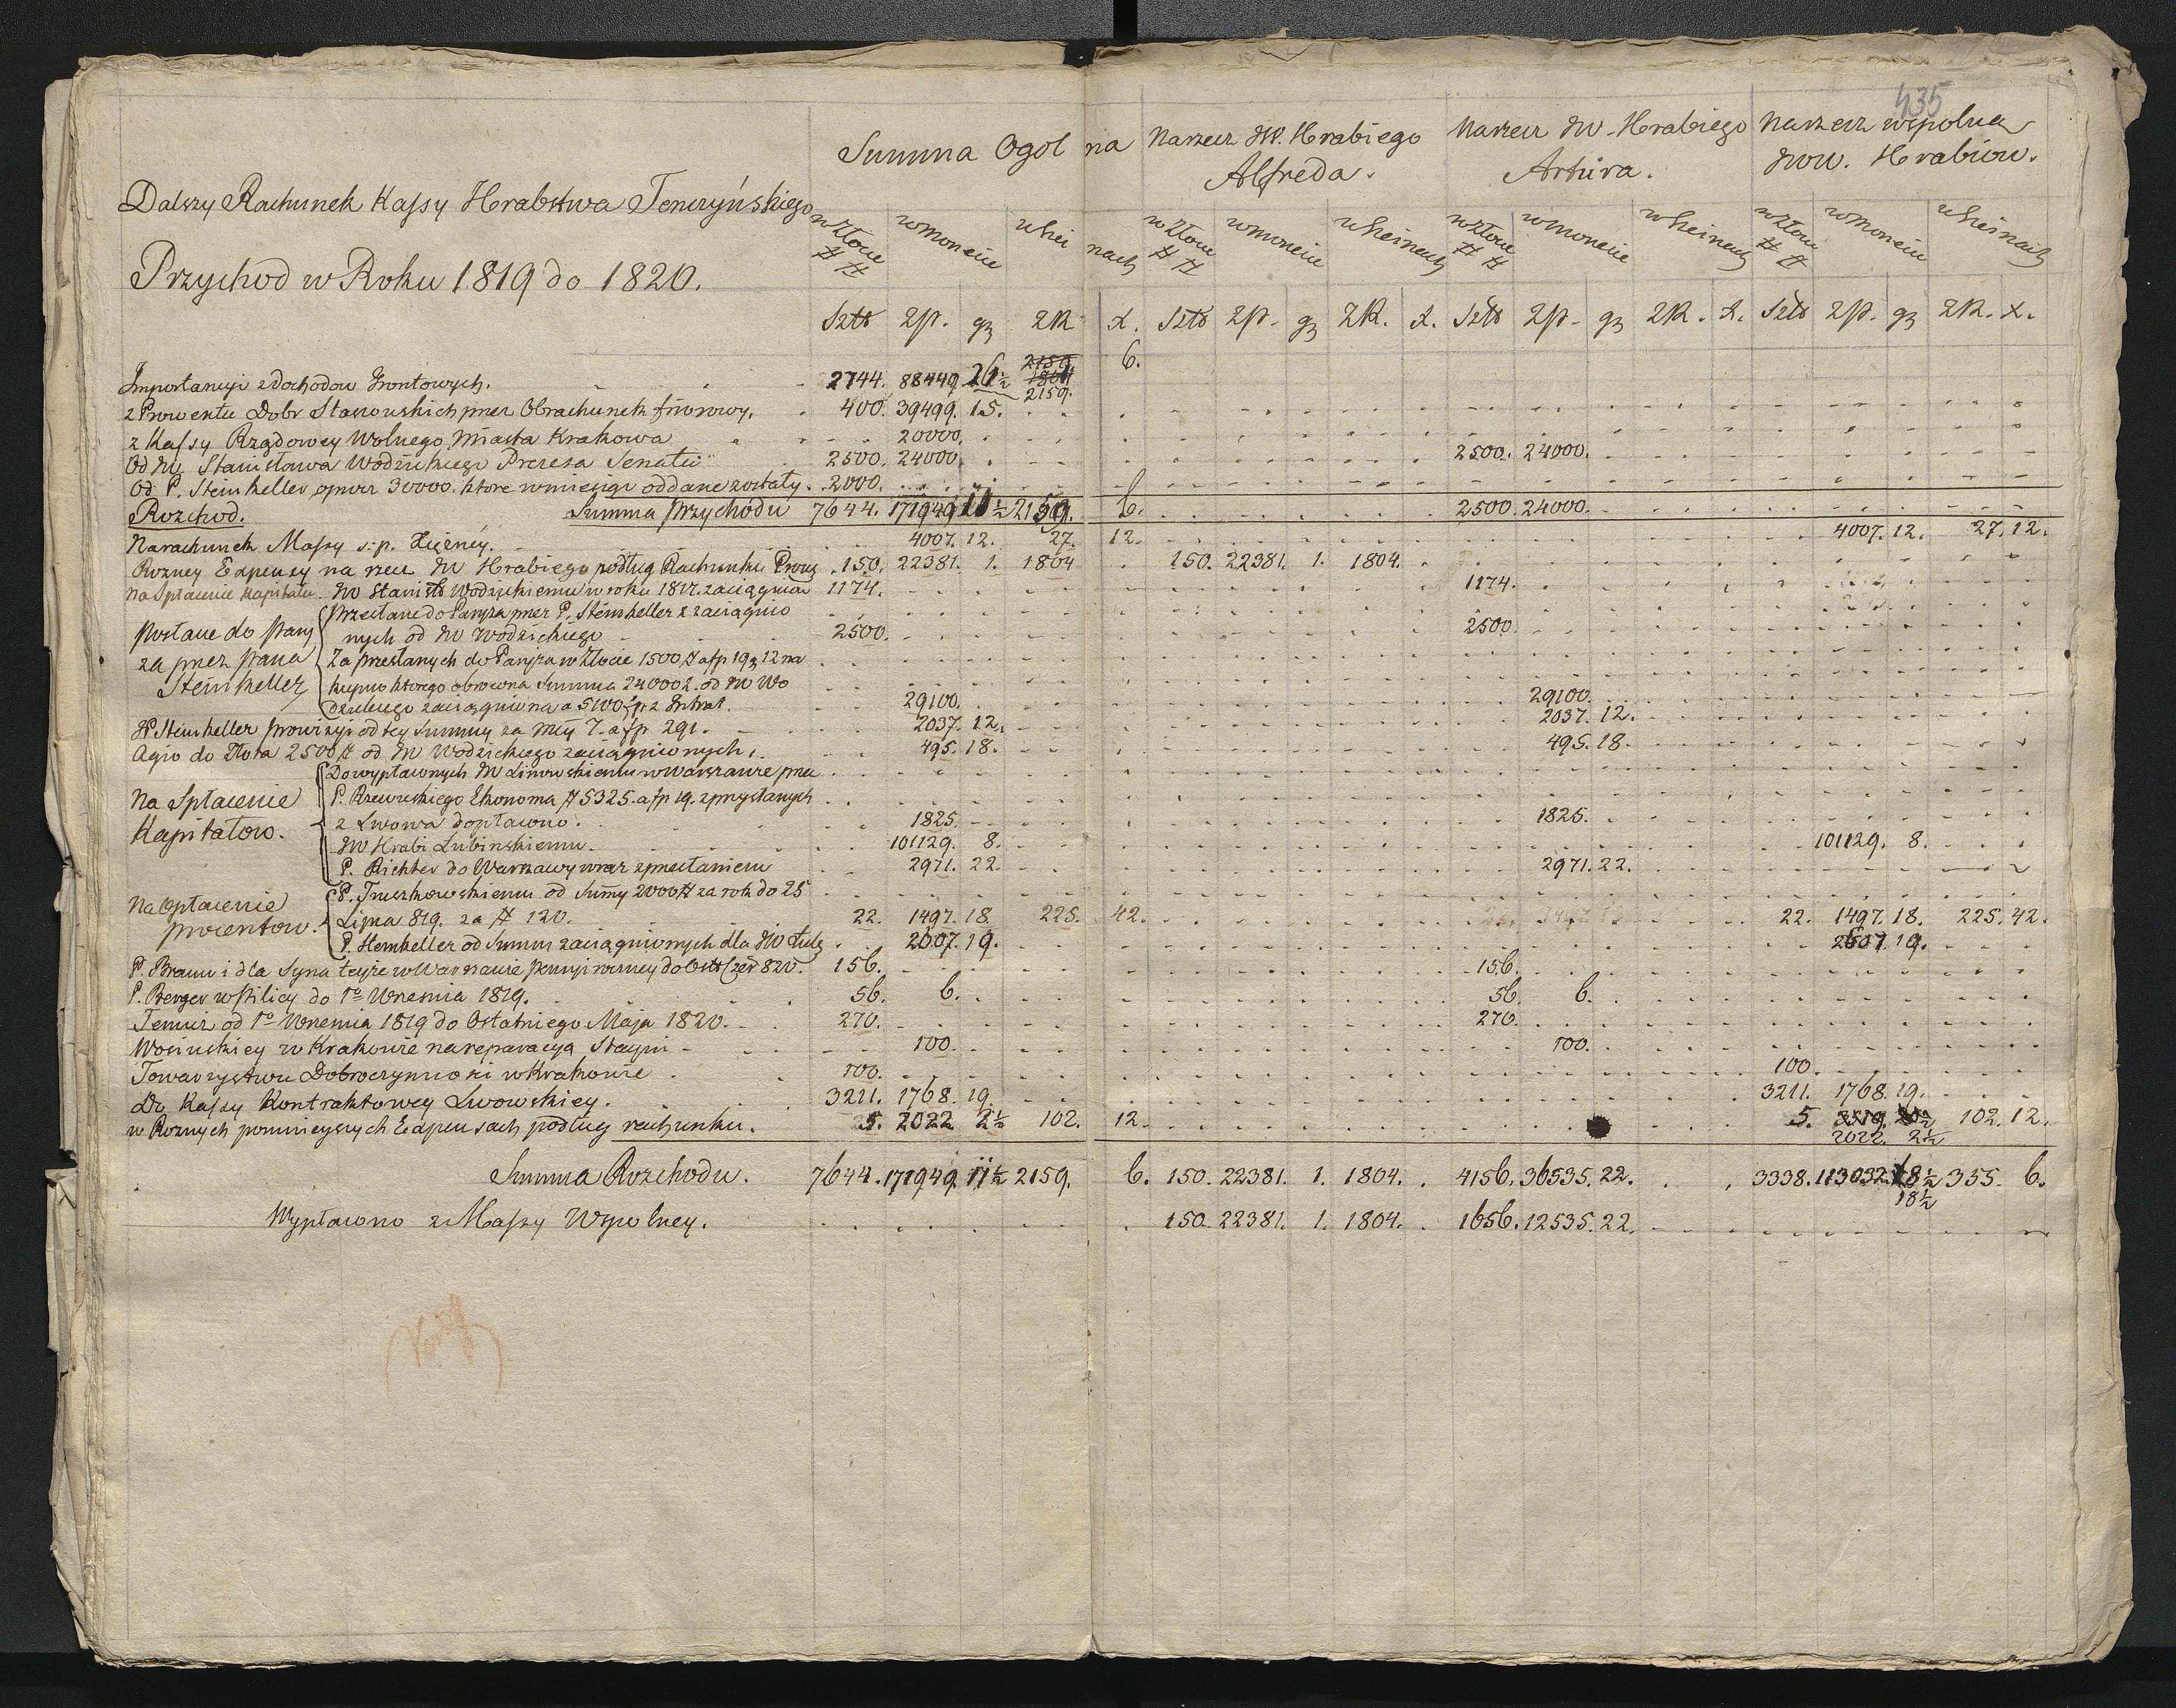 435
Summa Ogolna Narzecz JW. Hrabiego Alfreda. Narzecz JW. Hrabiego Artura. Narzecz wspolna JWW. Hrabiow.
Dalszy Rachunek Kassy Hrabstwa Tenczyńskiego
Przychod w Roku 1819 do 1820.
w Złocie ## w Monecie w Sheinach w Złocie ## w Monecie w Sheinach w Złocie ## w Monecie w Sheinach w Złocie ## w Monecie w Sheinach
Sztk Zp. gr ZR x. Sztk Zp. gr ZR. x. Sztk Zp. gr ZR. x. Sztk Zp. gr ZR. x.
2159
1804
Importancyi z Dochodow Grontowych. 2744. 88449. 26½ 2159. 6.
z Prowentu Dobr Staszowskich przez Obrachunek 400. 39499. 15.
z Kassy Rządowey Wolnego Miasta Krakowa 20000.
Od JW. Stanisława Wodzickiego Prezesa Senatu 2500. 24000. 2500. 24000.
Od P. Steinkeller oprocz 30000. ktore oddane zostały. 2000.
Rozchod. Summa przychodu 7644. 171949 11½ 2159. 6. 2500. 24000.
Na rachunek Massy s:p. 4007. 12. 27. 12. 4007. 12. 27. 12.
Rozney Expensy na rzecz JW Hrabiego podług Rachunku 150. 22381. 1. 1804 150. 22381. 1. 1804.
Na Spłacenie Kapitału JW Stanisł Wodzickiemu w roku 1817. zaciągnion 1174. 1174.
Przesłane do Paryża przez P. Steinkeller z zaciągnio
posłane do Pary nych od JW Wodzickiego 2500. 2500.
za przez Pana Za przesłanych do Paryża w Złocie 1500 # a fp 19 g 12 na
Steinkeller kupno ktorego obrocona Summa 24000 z. od JW Wo
dzickiego zaciągniona a 5100 fp z Intrat. 29100. 29100.
P. Steinkeller prowizyi od tey Summy za Mcy 7. a fp 291. 2037. 12. 2037. 12.
Agio do Złota 2500 # od JW Wodzickiego zaciągnionych. 495. 18. 495. 18.
Do wypłaconych JW Linowskiemu w Warszawie przez
Na Spłacenie P. Rzewuskiego Ekonoma # 5325. a fp 19. z przysłanych
Kapitałow. z Lwowa dopłacono. 1825. 1825.
JW Hrabi Łubinskiemu. 101129. 8. 101129. 8.
P. Richter do Warszawy wraz z przesłaniem 2971. 22. 2971. 22.
P. Truszkowskiemu od Summy 2000 # za rok do 25
Na Opłacenie Lipca 819. za # 120. 22. 1497. 18 225. 42. 22. 1497. 18. 225. 42.
procentow. P. Steinkeller od Summ zaciągnionych dla JW 2607. 19. 2607. 19.
P. Braun i dla Syna teyże w Warszawie pensyi roczney do Ostt Czer 820. 156. 156.
P. Berger w Pilicy do 1º Wrzesnia 1819. 56. 6. 56. 6.
Temuż od 1º Wrzesnia 1819 do Ostatniego Maja 1820. 270. 270.
Wosinskiey w Krakowie na reparacyą Stayni 100. 100.
Towarzystwu Dobroczynnosci w Krakowie 100. 100.
Do Kassy Kontraktowey Lwowskiey. 3211. 1768. 19. 3211. 1768. 19.
w Roznych pomnieyszych Expensach podług rachunku. 5. 2022 2½ 102. 12. 5. 102. 12.
2022. 2½
Summa Rozchodu. 7644. 171949. 11½ 2159. 6. 150. 22381. 1. 1804. 4156. 36535. 22. 3338. 113032. 18½ 355. 6.
18½
Wypłacono z Massy Wspolney. 150. 22381. 1. 1804. 1656. 12535. 22.